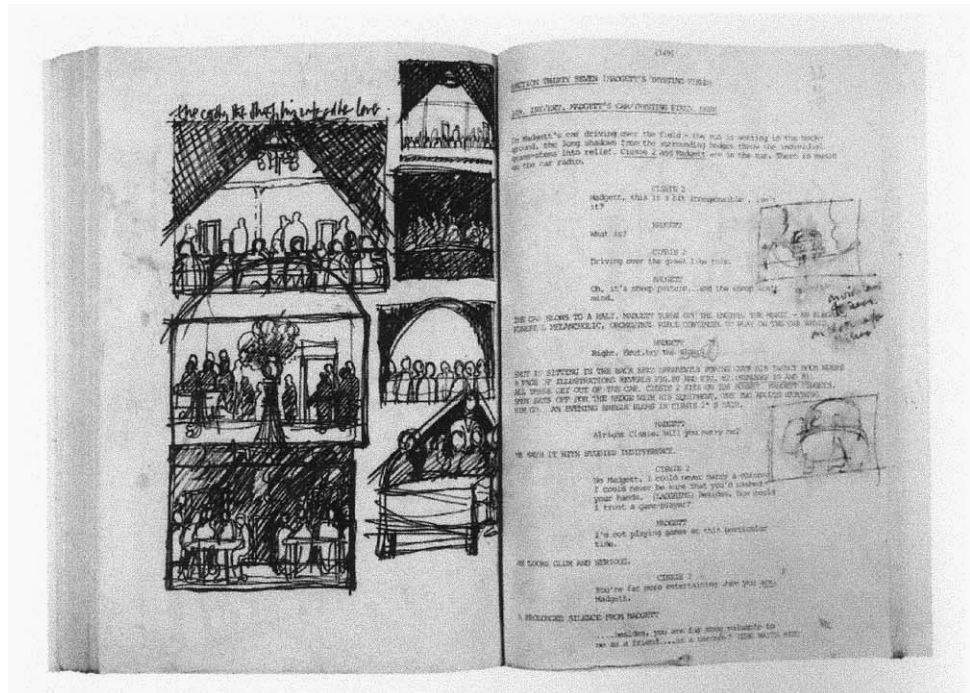 the cook, the thief, his wife & the lover.
(149)
SECTION THIRTY SEVEN (MADGETT'S
INT/EXT. MADGETT'S CAR/
In Madgett's car driving over the field - the sun is setting in the back-
ground, the long shadows from the surrounding hedges throw the individual
into relief. Cissie 2 and Madgett are in the car. There is music
on the car radio.
CISSIE 2
Madgett, this is a bit irresponsible .. isn't
it?
MADGETT
What is?
CISSIE 2
Driving over the grass like this.
MADGETT
Oh, it's sheep pasture...and the sheep don't
mind.
THE CAR SLOWS TO A HALT. MADGETT TURNS OFF THE ENGINE. THE MUSIC - AN
MELANCHOLIC, ORCHESTRAL PIECE CONTINUES TO PLAY ON THE CAR RADIO.
MADGETT
Right. First, try the
SMUT IS SITTING IN THE BACK SEAT
A PAGE OF ILLUSTRATIONS REVEALS
ALL THREE GET OUT OF THE CAR. CISSIE 2 SITS ON THE
SMUT SETS OFF FOR THE HEDGE WITH HIS EQUIPMENT, THE TWO ADULTS
AN EVENING BREEZE BLOWS IN CISSIE 2'S HAIR.
MADGETT
Alright Cissie, will you marry me?
HE SAYS IT WITH STUDIED INDIFFERENCE.
CISSIE 2
No Madgett. I could never marry a coroner.
I could never be sure that you'd washed
your hands. (LAUGHING) Besides, how could
I trust a game-player?
MADGETT
I'm not playing games at this particular
time.
HE LOOKS GLUM AND SERIOUS.
CISSIE 2
You're far more entertaining when you are,
Madgett.
A PROLONGED SILENCE FROM MADGETT
....besides, you are far more valuable to
me as a friend....as a